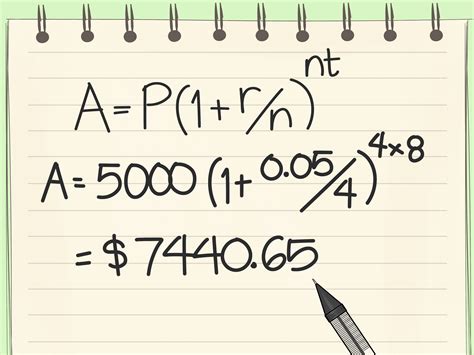 A = P(1 + r/n)^nt
A = 5000 (1 + 0.05/4)^4×8
= $7440.65